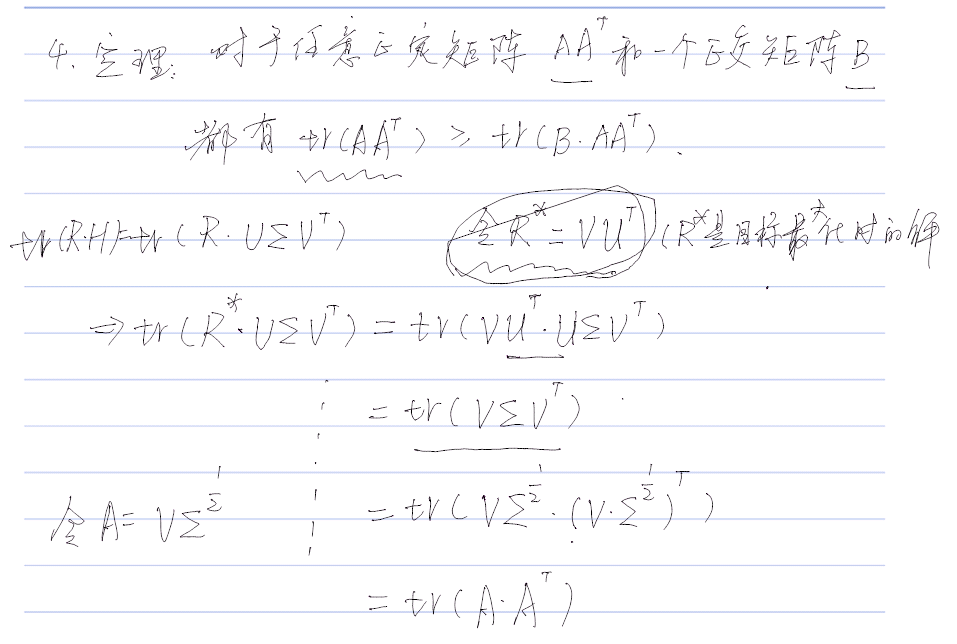 4. 定理: 对于任意正定矩阵 AAᵀ 和一个正交矩阵 B
都有 tr(AAᵀ) ≥ tr(B·AAᵀ).
tr(R·H)=tr(R·UΣVᵀ) 令 R* = VUᵀ (R*是目标最大化时的解
⇒ tr(R*·UΣVᵀ) = tr(VUᵀ·UΣVᵀ)
= tr(VΣVᵀ)
令 A = VΣ^½ = tr(VΣ^½·(V·Σ^½)ᵀ)
= tr(A·Aᵀ)